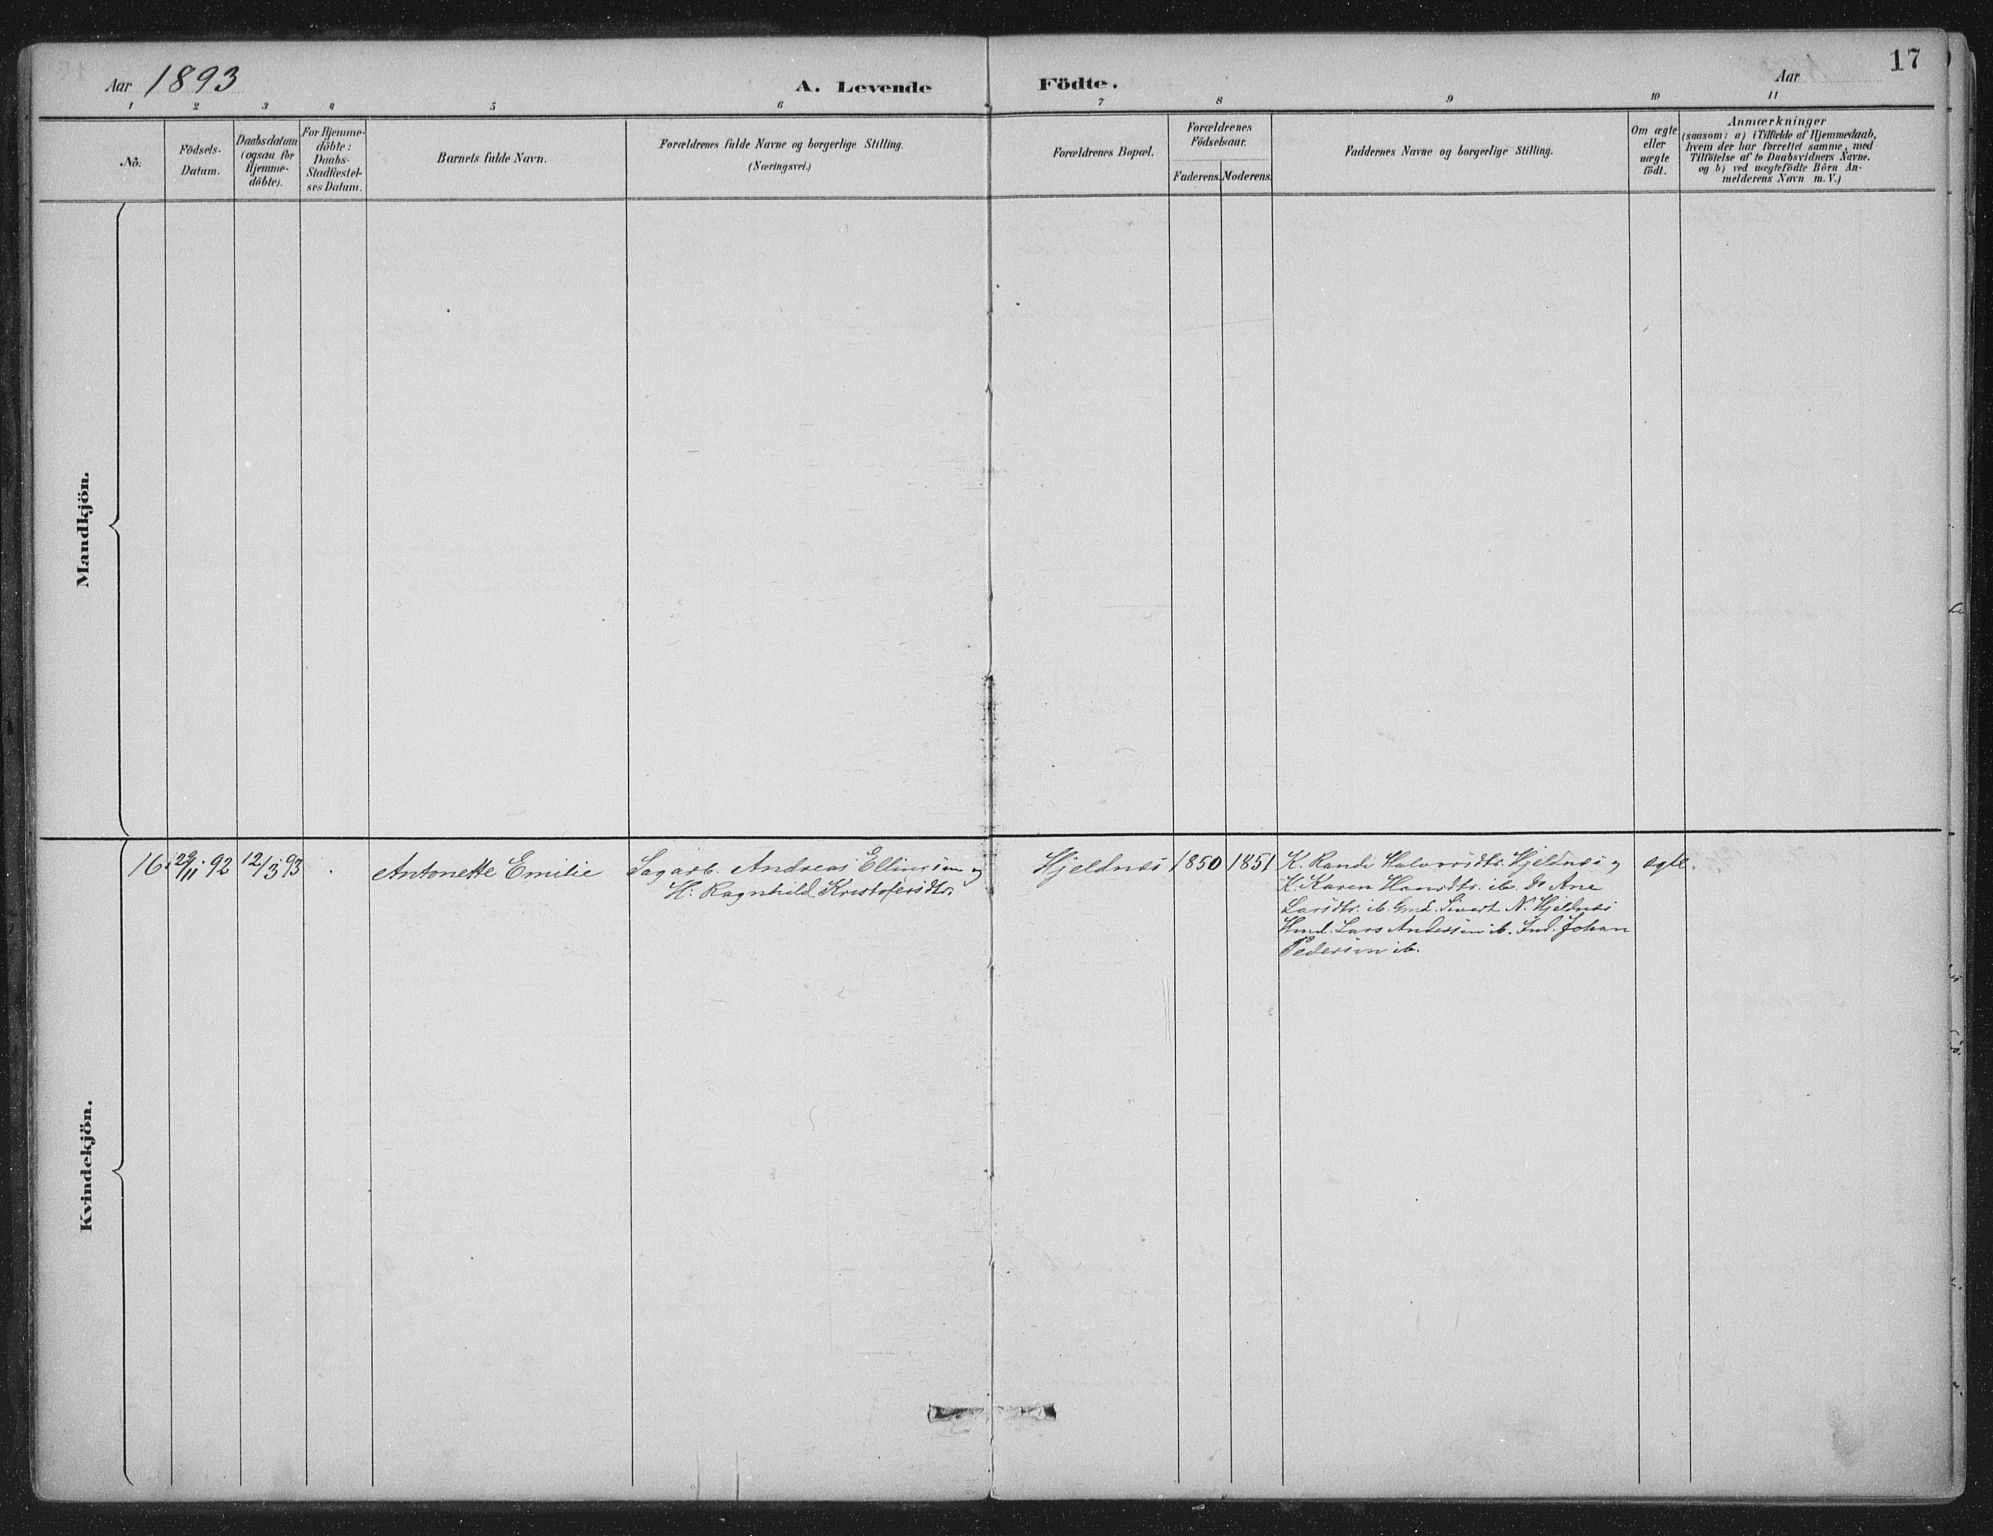 Aar 1893
A. Levende Födte.
Aar
17
1 2 3 4 5 6 7 8 9 10 11
No.
Födsels-
Datum.
Daabsdatum
(ogsaa for
Hjemme-
döbte).
For Hjemme-
döbte:
Daabs-
Stadfæstel-
ses Datum.
Barnets fulde Navn.
Forældrenes fulde Navne og borgerlige Stilling.
(Næringsvei.)
Forældrenes Bopæl.
Forældrenes
Födselsaar.
Faderens. Moderens.
Faddernes Navne og borgerlige Stilling.
Om ægte
eller
uægte
födt.
Anmærkninger
(saasom: a) i Tilfælde af Hjemmedaab,
hvem der har forrettet samme, med
Tilföielse af to Daabsvidners Navne.
og b) ved uægtefödte Börn An-
melderens Navn m. V.)
Mandkjön.
16. 29/11 92 12/3 93 Antonette Emilie Sagarb. Andreas Ellingsen og Hjeldnes 1850 1851 K. Randi Halvorsdtr. Hjeldnes og ægte.
H. Ragnhild Kristofersdtr.
K. Karen Hansdtr. ib. Do Ane
Larsdtr. ib. Gmd. Sivert N. Hjeldnes
Hmd. Lars Andersen ib. Ind. Johan
Pedersen ib.
Kvindekjön.